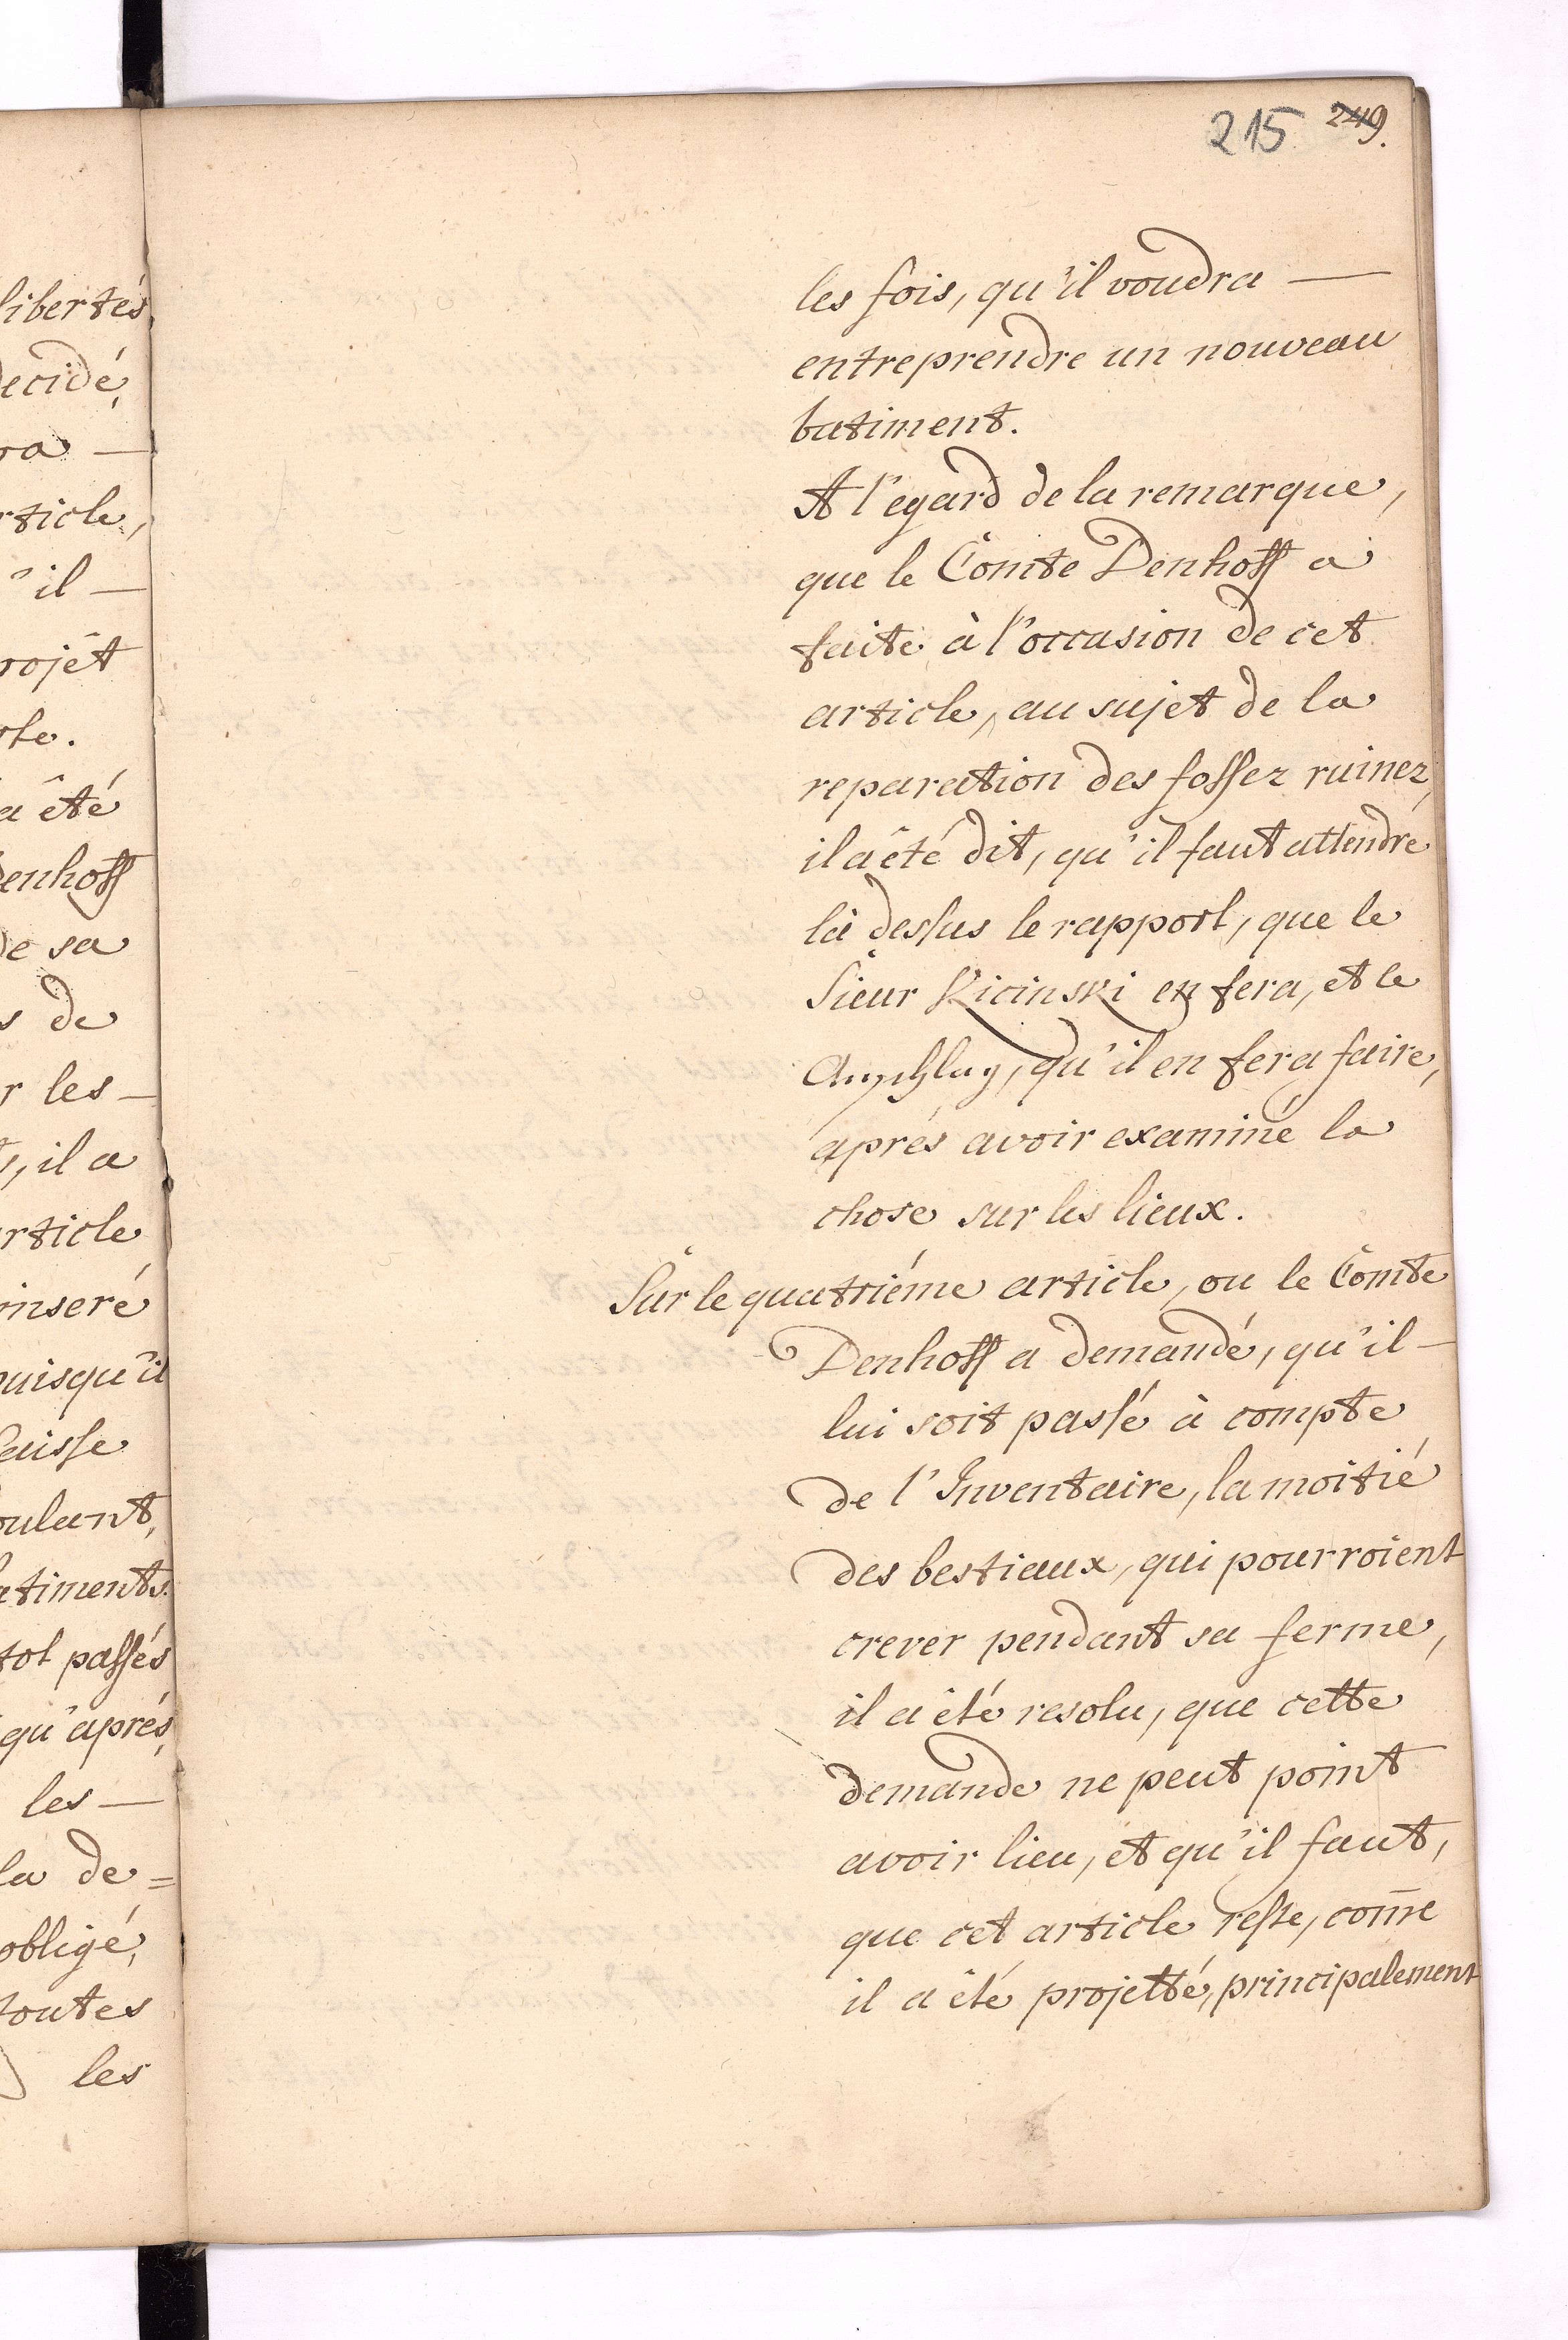 215 249.
les fois, qu'il voudra —
entreprendre un nouveau
batiment.
A l'egard de la remarque,
que le Comte Denhoff a
faite à l'occasion de cet
article, au sujet de la
reparation des fossez ruinez,
il a êté dit, qu'il faut attendre
là dessus le rapport, que le
Sieur Kicinski en fera, et le
Anschlag, qu'il en fera faire,
aprés avoir examiné la
chose sur les lieux.
Sur le quatriéme article, ou le Comte
Denhoff a demandé, qu'il —
lui soit passé à compte
de l'Inventaire, la moitié
des bestiaux, qui pourroient
crever pendant sa ferme,
il a êté resolu, que cette
demande ne peut point
avoir lieu, et qu'il faut,
que cet article reste, com̅e
il a êté projetté, principalement
libertés,
decidé,
ra —
rticle,
'il —
rojèt
rte.
a êté
Denhoff
de sa
s de
r les —
, il a
article
inseré
puisqu'il
Caisse
oulant,
atiments.
tot passés
qu'aprés,
les —
la de =
obligé,
toutes
les